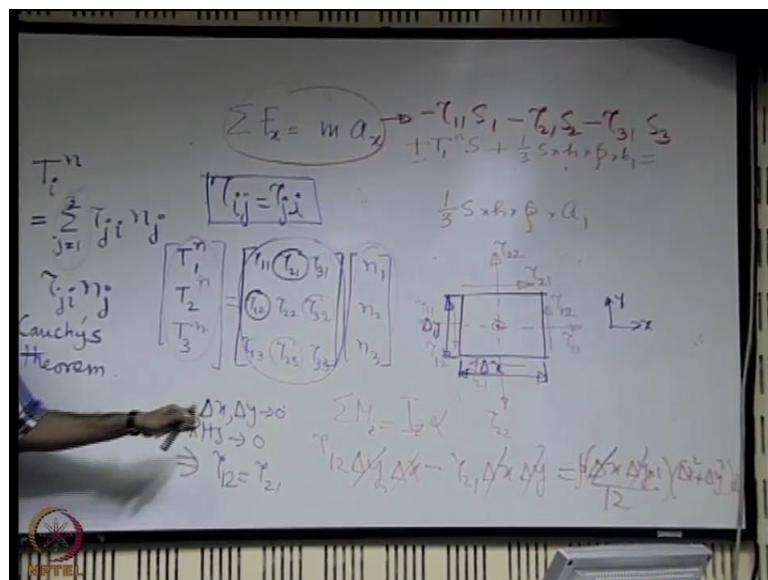 ΣFx = m ax → -τ11 S1 - τ21 S2 - τ31 S3
+ T1^n S + 1/3 S×h×ρ×b1 =
1/3 S×h×ρ×a1
Ti^n
= Σ j=1 3 τji nj
τij = τji
τji nj
Cauchy's
theorem.
[T1^n T2^n T3^n] = [τ11 τ21 τ31
τ12 τ22 τ32
τ13 τ23 τ33] [n1 n2 n3]
τ22
τ21
τ11
τ12
Δy
τ12
τ11
Δx
τ21
τ22
y
x
Δx, Δy → 0
RHS → 0
⇒ τ12 = τ21
ΣMz = Iz α
τ12 Δy Δx - τ21 Δx Δy = ρ(Δx Δy×1)/12 (Δx² + Δy²) α
NPTEL